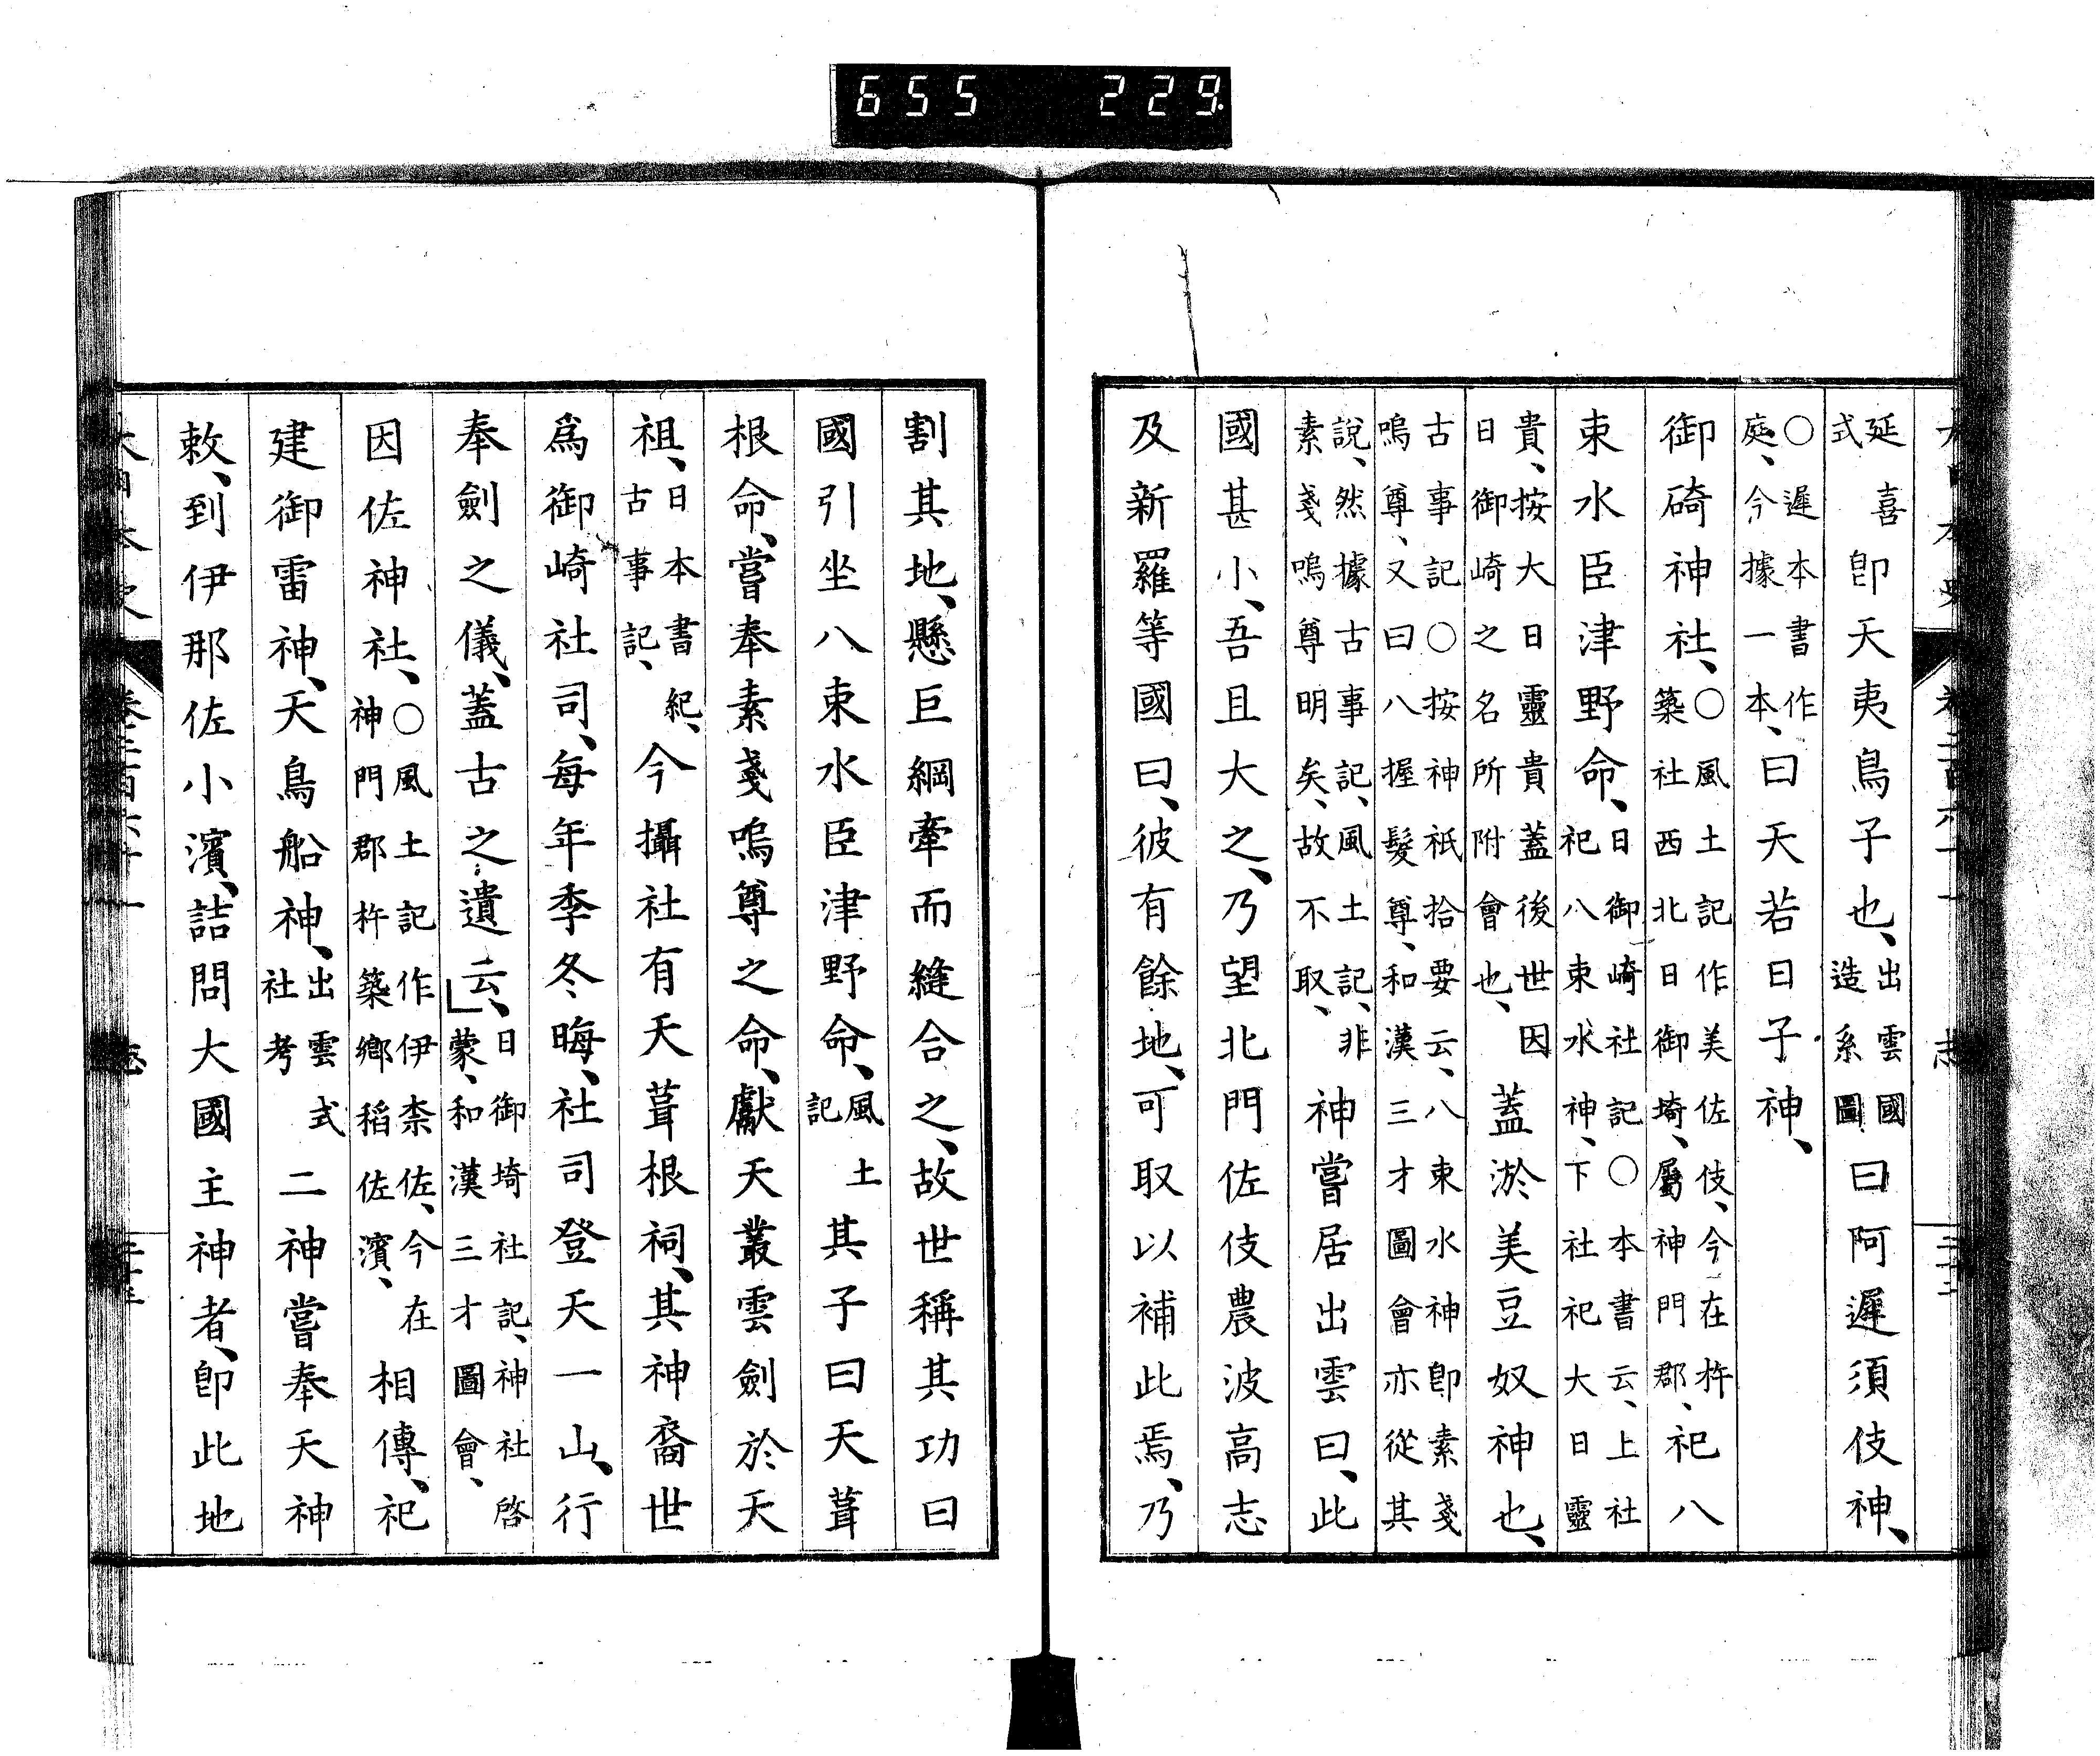 大日本史 卷二百六十一 志
延喜式即天夷鳥子也、出雲國造系圖曰阿遲須伎神、
○遲本書作庭、今據一本、曰天若日子神、
御碕神社、○風土記作美佐伎、今在杵築社西北日御埼、屬神門郡、祀八
束水臣津野命、日御崎社記○本書云、上社祀八束水神、下社祀大日靈
貴、按大日靈貴蓋後世因日御崎之名所附會也、蓋淤美豆奴神也、
古事記○按神祇拾要云、八束水神即素戔嗚尊、又曰八握髮尊、和漢三才圖會亦從其
說、然據古事記、風土記、非素戔嗚尊明矣、故不取、神嘗居出雲曰、此
國甚小、吾且大之、乃望北門佐伎農波高志
及新羅等國曰、彼有餘地、可取以補此焉、乃
割其地、懸巨綱牽而縫合之、故世稱其功曰
國引坐八束水臣津野命、風土記其子曰天葺
根命、嘗奉素戔嗚尊之命、獻天叢雲劍於天
祖、日本書紀、古事記、今攝社有天葺根祠、其神裔世
爲御崎社司、每年季冬晦、社司登天一山、行
奉劍之儀、蓋古之遺云、日御埼社記、神社啓蒙、和漢三才圖會、
因佐神社、○風土記作伊柰佐、今在神門郡杵築鄉稻佐濱、相傳、祀
建御雷神、天鳥船神、出雲式社考二神嘗奉天神
敕、到伊那佐小濱、詰問大國主神者、即此地
大日本史 卷二百六十一 志